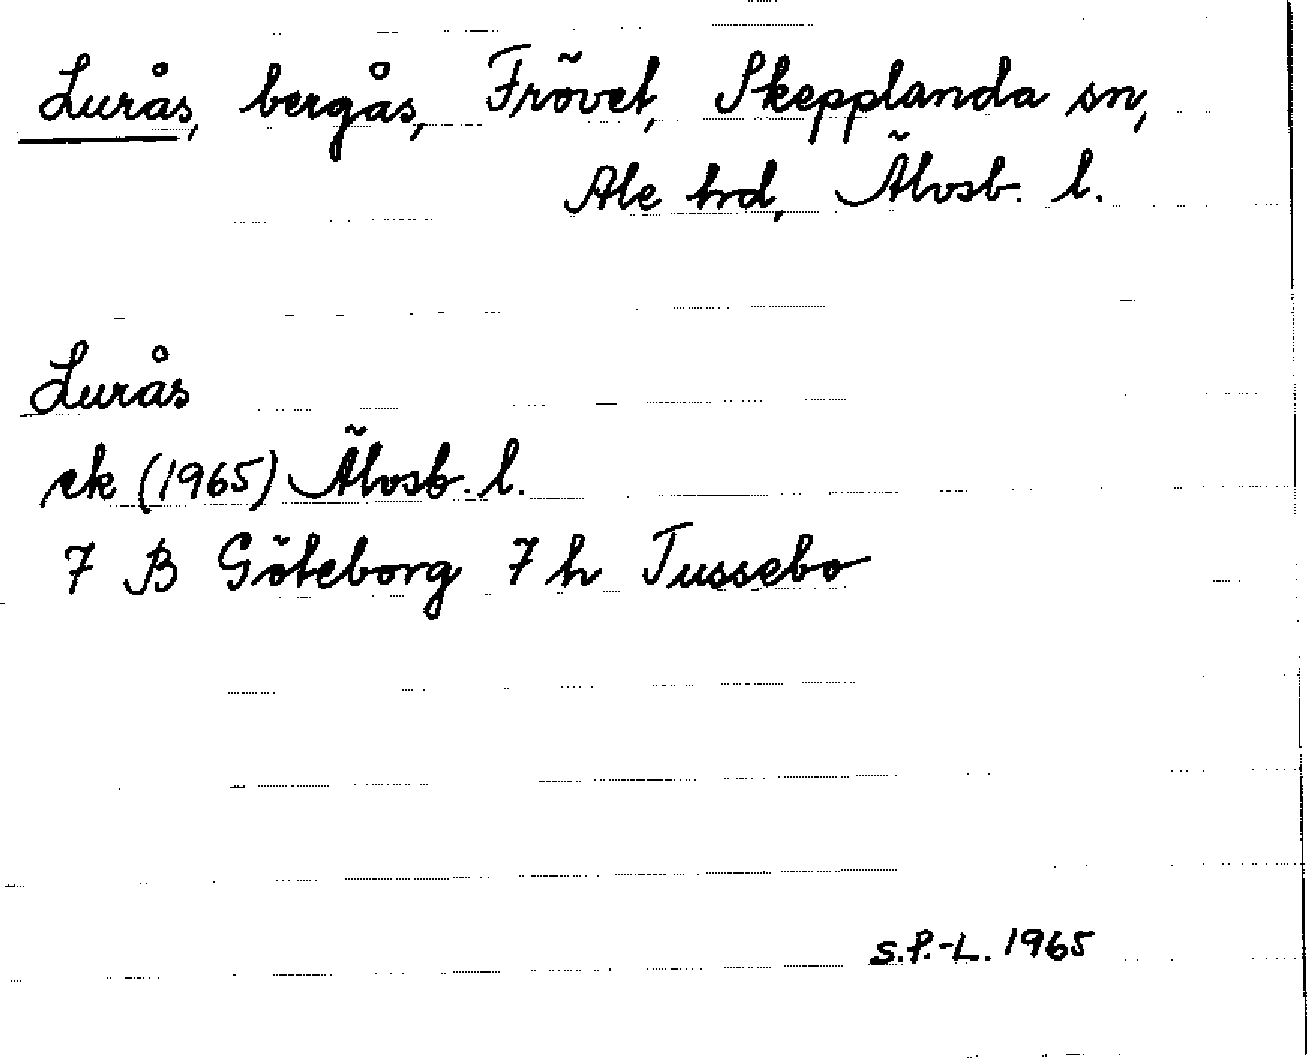 Lurås, bergås, Frövet, Skepplanda sn,
Ale hrd, Älvsb. l.
Lurås
ek (1965) Älvsb. l.
7 B Göteborg 7 h Tussebo
S.P.-L. 1965